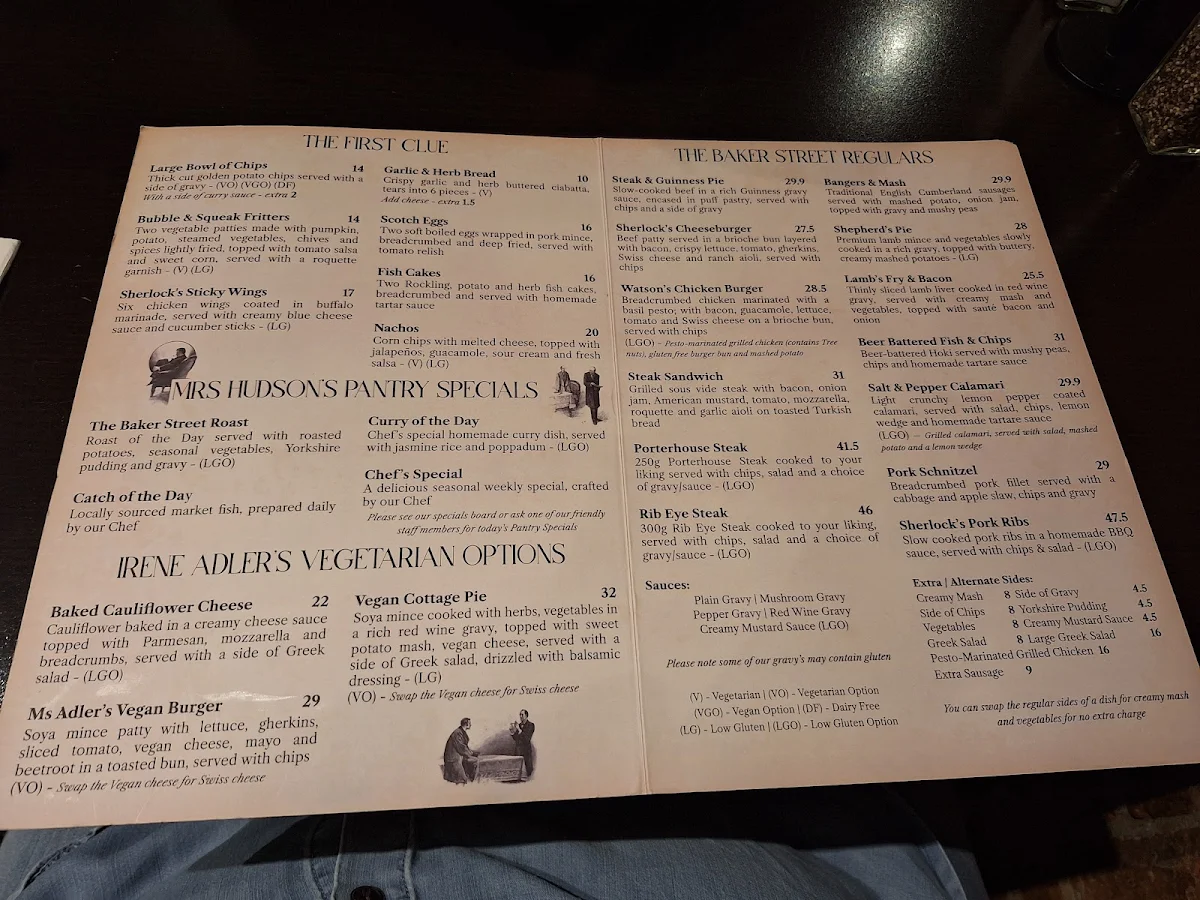 THE FIRST CLUE
Large Bowl of Chips 14
Thick cut golden potato chips served with a
side of gravy - (VO) (VGO) (DF)
With a side of curry sauce - extra 2
Bubble & Squeak Fritters 14
Two vegetable patties made with pumpkin,
potato, steamed vegetables, chives and
spices lightly fried, topped with tomato salsa
and sweet corn, served with a roquette
garnish - (V) (LG)
Sherlock's Sticky Wings 17
Six chicken wings coated in buffalo
marinade, served with creamy blue cheese
sauce and cucumber sticks - (LG)
Garlic & Herb Bread 10
Crispy garlic and herb buttered ciabatta,
tears into 6 pieces - (V)
Add cheese - extra 1.5
Scotch Eggs 16
Two soft boiled eggs wrapped in pork mince,
breadcrumbed and deep fried, served with
tomato relish
Fish Cakes 16
Two Rockling, potato and herb fish cakes,
breadcrumbed and served with homemade
tartar sauce
Nachos 20
Corn chips with melted cheese, topped with
jalapeños, guacamole, sour cream and fresh
salsa - (V) (LG)
MRS HUDSON'S PANTRY SPECIALS
The Baker Street Roast
Roast of the Day served with roasted
potatoes, seasonal vegetables, Yorkshire
pudding and gravy - (LGO)
Catch of the Day
Locally sourced market fish, prepared daily
by our Chef
Curry of the Day
Chef's special homemade curry dish, served
with jasmine rice and poppadum - (LGO)
Chef's Special
A delicious seasonal weekly special, crafted
by our Chef
Please see our specials board or ask one of our friendly
staff members for today's Pantry Specials
IRENE ADLER'S VEGETARIAN OPTIONS
Baked Cauliflower Cheese 22
Cauliflower baked in a creamy cheese sauce
topped with Parmesan, mozzarella and
breadcrumbs, served with a side of Greek
salad - (LGO)
Ms Adler's Vegan Burger 29
Soya mince patty with lettuce, gherkins,
sliced tomato, vegan cheese, mayo and
beetroot in a toasted bun, served with chips
(VO) - Swap the Vegan cheese for Swiss cheese
Vegan Cottage Pie 32
Soya mince cooked with herbs, vegetables in
a rich red wine gravy, topped with sweet
potato mash, vegan cheese, served with a
side of Greek salad, drizzled with balsamic
dressing - (LG)
(VO) - Swap the Vegan cheese for Swiss cheese
THE BAKER STREET REGULARS
Steak & Guinness Pie 29.9
Slow-cooked beef in a rich Guinness gravy
sauce, encased in puff pastry, served with
chips and a side of gravy
Sherlock's Cheeseburger 27.5
Beef patty served in a brioche bun layered
with bacon, crispy lettuce, tomato, gherkins,
Swiss cheese and ranch aioli, served with
chips
Watson's Chicken Burger 28.5
Breadcrumbed chicken marinated with a
basil pesto; with bacon, guacamole, lettuce,
tomato and Swiss cheese on a brioche bun,
served with chips
(LGO) - Pesto-marinated grilled chicken (contains Tree
nuts), gluten free burger bun and mashed potato
Steak Sandwich 31
Grilled sous vide steak with bacon, onion
jam, American mustard, tomato, mozzarella,
roquette and garlic aioli on toasted Turkish
bread
Porterhouse Steak 41.5
250g Porterhouse Steak cooked to your
liking served with chips, salad and a choice
of gravy/sauce - (LGO)
Rib Eye Steak 46
300g Rib Eye Steak cooked to your liking,
served with chips, salad and a choice of
gravy/sauce - (LGO)
Sauces:
Plain Gravy | Mushroom Gravy
Pepper Gravy | Red Wine Gravy
Creamy Mustard Sauce (LGO)
Please note some of our gravy's may contain gluten
(V) - Vegetarian | (VO) - Vegetarian Option
(VGO) - Vegan Option | (DF) - Dairy Free
(LG) - Low Gluten | (LGO) - Low Gluten Option
Bangers & Mash 29.9
Traditional English Cumberland sausages
served with mashed potato, onion jam,
topped with gravy and mushy peas
Shepherd's Pie 28
Premium lamb mince and vegetables slowly
cooked in a rich gravy, topped with buttery,
creamy mashed potatoes - (LG)
Lamb's Fry & Bacon 25.5
Thinly sliced lamb liver cooked in red wine
gravy, served with creamy mash and
vegetables, topped with sauté bacon and
onion
Beer Battered Fish & Chips 31
Beer-battered Hoki served with mushy peas,
chips and homemade tartare sauce
Salt & Pepper Calamari 29.9
Light crunchy lemon pepper coated
calamari, served with salad, chips, lemon
wedge and homemade tartare sauce
(LGO) - Grilled calamari, served with salad, mashed
potato and a lemon wedge
Pork Schnitzel 29
Breadcrumbed pork fillet served with a
cabbage and apple slaw, chips and gravy
Sherlock's Pork Ribs 47.5
Slow cooked pork ribs in a homemade BBQ
sauce, served with chips & salad - (LGO)
Extra | Alternate Sides:
Creamy Mash 8 Side of Gravy 4.5
Side of Chips 8 Yorkshire Pudding 4.5
Vegetables 8 Creamy Mustard Sauce 4.5
Greek Salad 8 Large Greek Salad 16
Pesto-Marinated Grilled Chicken 16
Extra Sausage 9
You can swap the regular sides of a dish for creamy mash
and vegetables for no extra charge